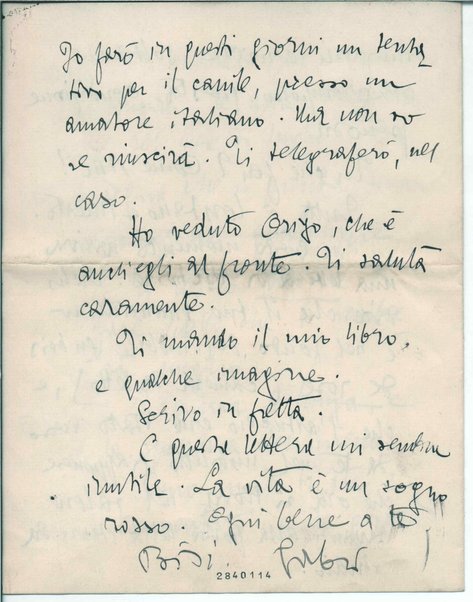 Io farò in questi giorni un tenta
tivo per il canile, presso un
amatore italiano. Ma non so
se riuscirà. Ti telegraferò, nel
caso.
Ho veduto Origo, che è
anch'egli al fronte. Ti saluta
caramente.
Ti mando il mio libro,
e qualche imagine.
Scrivo in fretta.
E questa lettera mi sembra
inutile. La vita è un sogno
rosso. Ogni bene a te
2840114